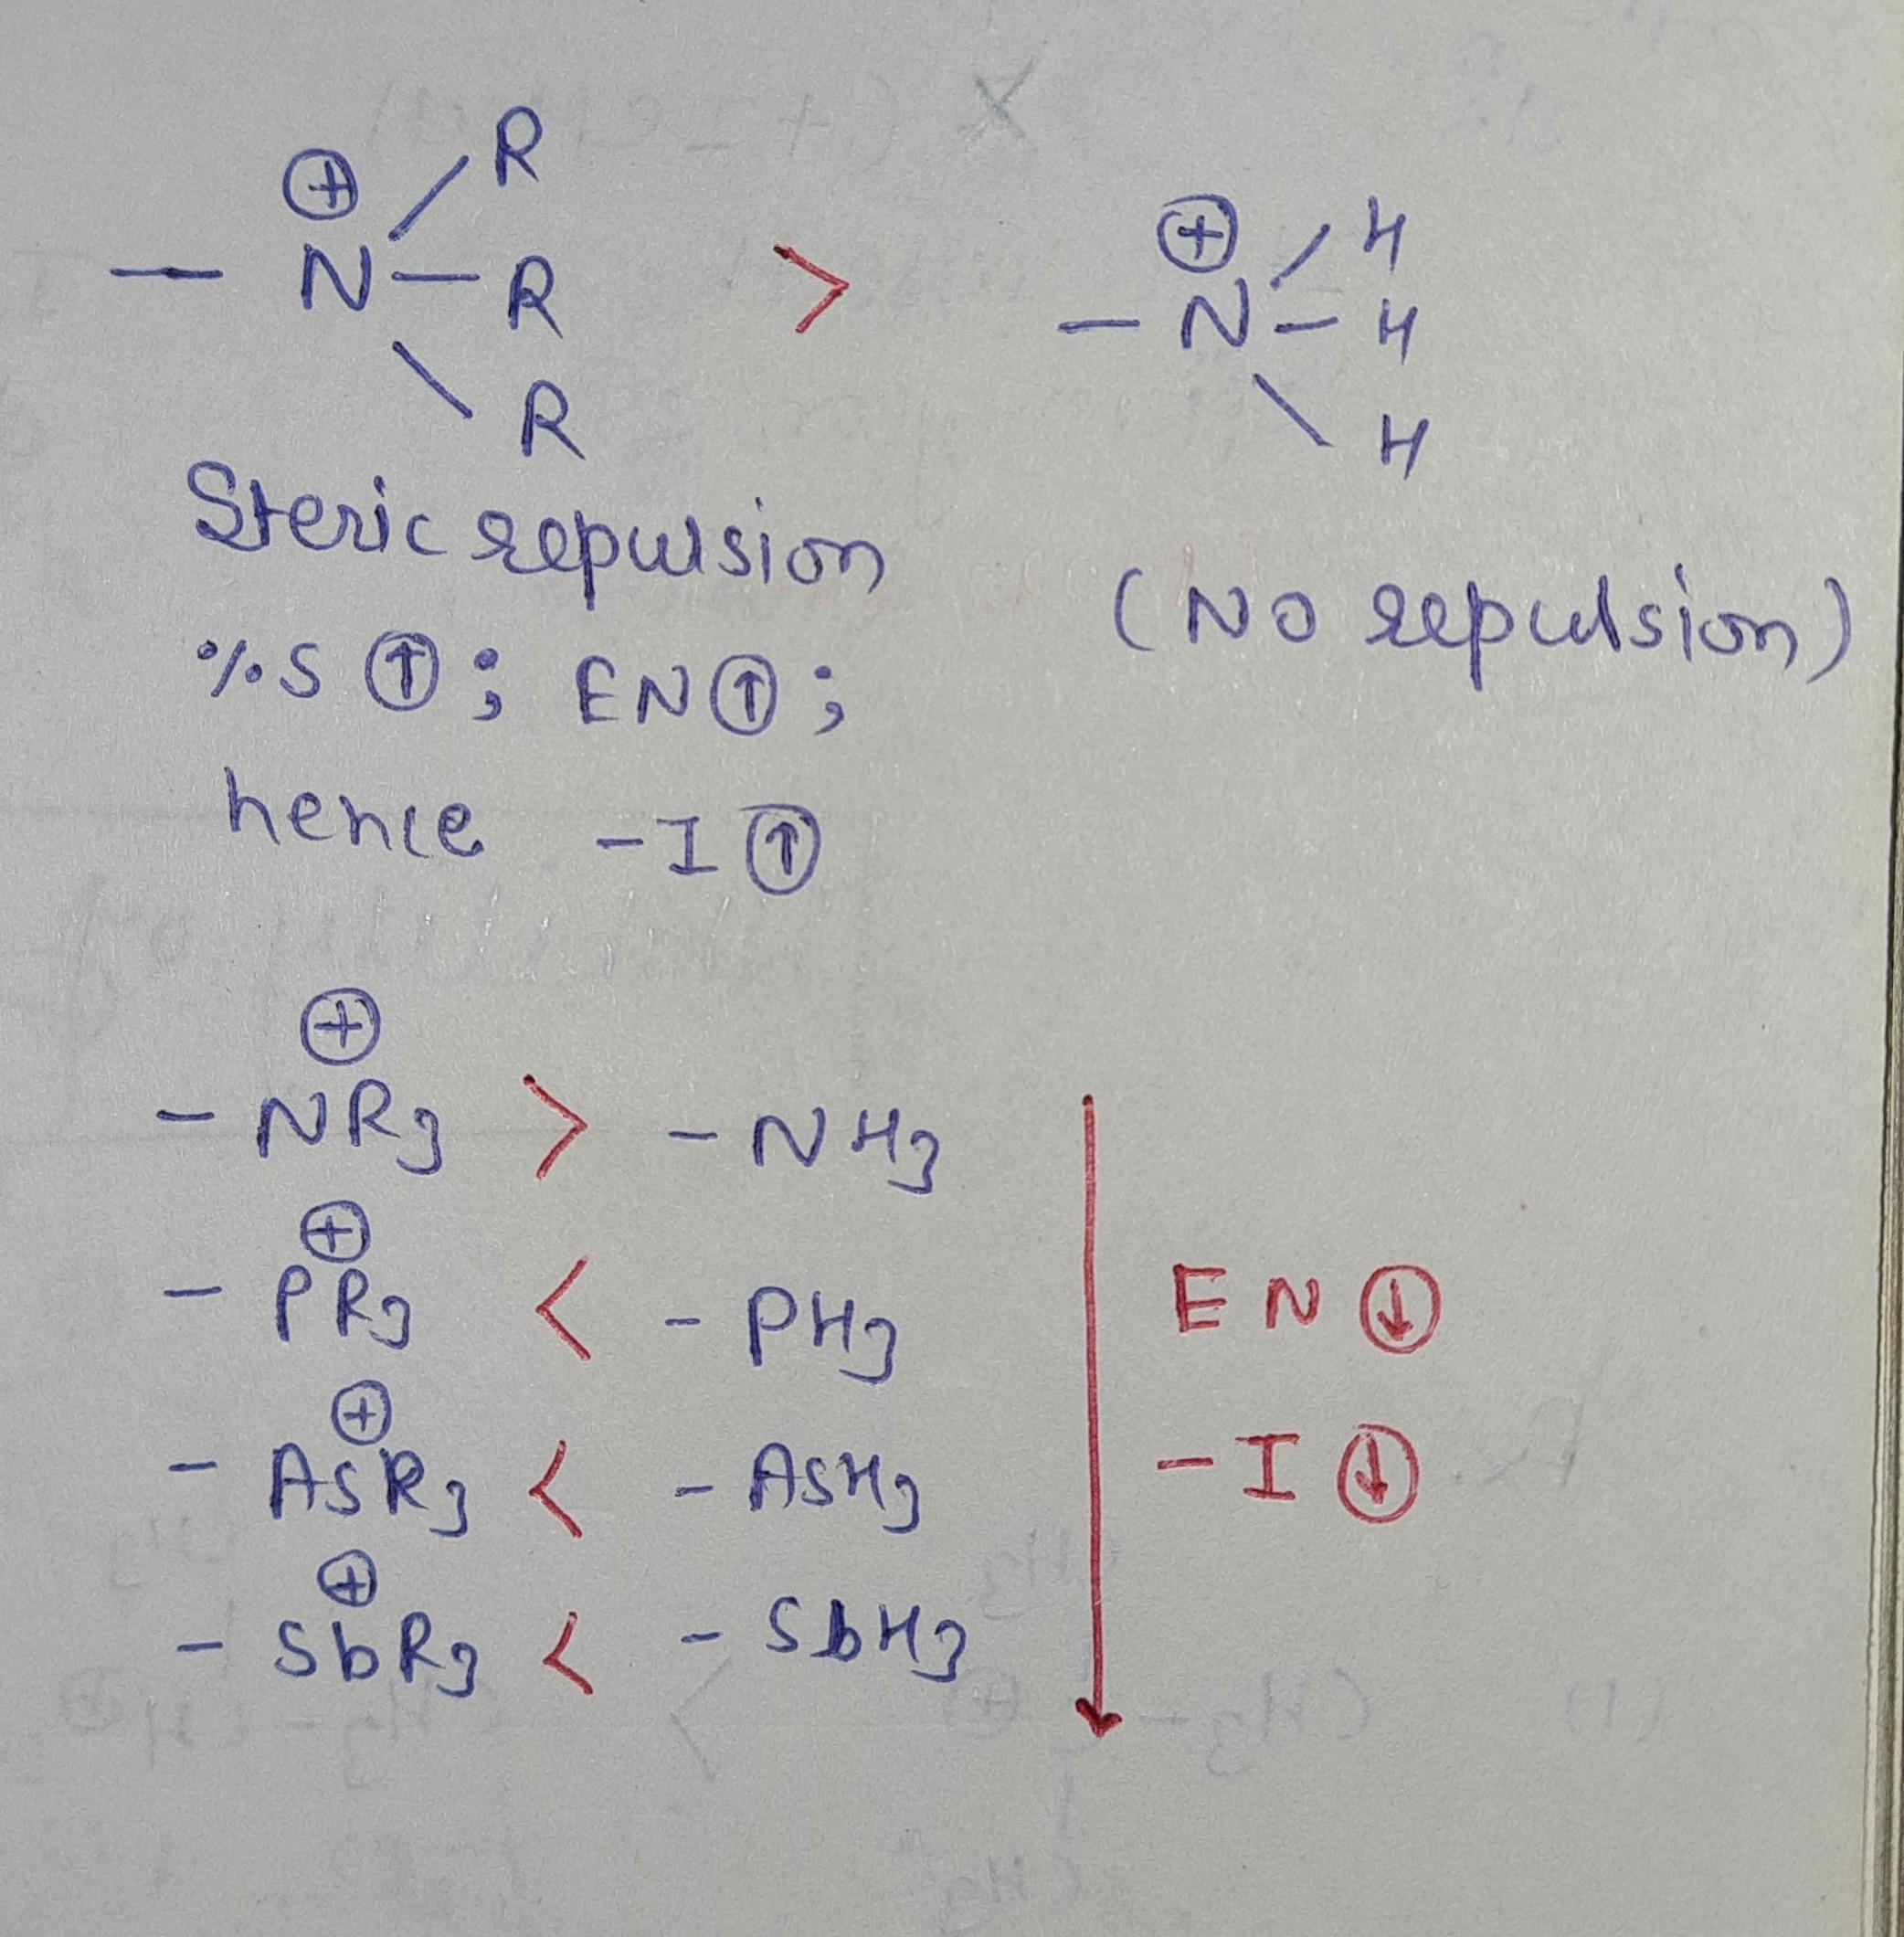 ⊕ R
— N — R > ⊕ H
R — N — H
H
Steric repulsion
(No repulsion)
%S ↑ ; EN ↑ ;
hence -I ↑
⊕
- NR3 > - NH3
⊕
- PR3 < - PH3
EN ↓
⊕
- AsR3 < - AsH3
-I ↓
⊕
- SbR3 < - SbH3